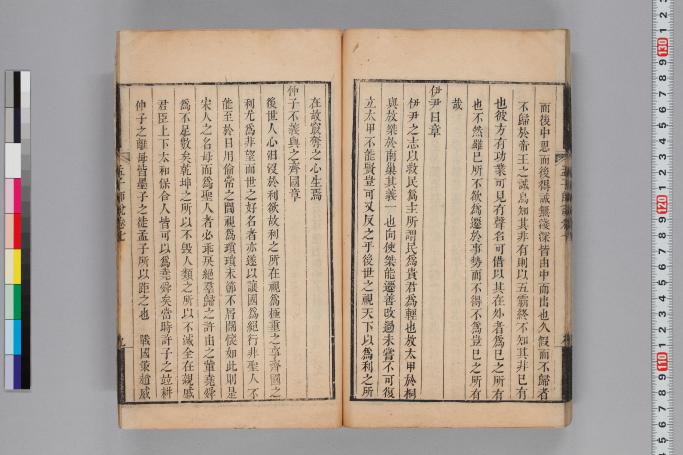 而後中思而後得誠無淺深皆由中而出也久假而不歸者
不歸於帝王之誠烏知其非有則以五霸終不知其非已有
也彼方有功業可見有聲名可借以其在外者為已之所有
也不然雖已所不欲為遷於事勢而不得不為豈已之所有
哉
伊尹曰章
伊尹之志以救民為主所謂民為貴君為輕也放太甲於桐
與放桀於南巢其義一也向使桀能遷善改過未嘗不可復
立太甲不能賢豈可又反之乎後世之視天下以為利之所
在故竄奪之心生焉
仲子不義與之齊國章
後世人心汩沒於利欲故利之所在視為極重之事齊國之
利尤為非望而世之好名者亦遂以讓國為絕行非聖人不
能至於日用倫常之間視為瑣瑣末節不屑關懷如此則是
宋人之名母而為聖人者必乖戾絕羣歸之許由之輩堯舜
為不足數矣乾坤之所以不毀人類之所以不滅全在親戚
君臣上下太和保合人皆可以為堯舜矣當時許子之竝耕
仲子之離母皆墨子之徒孟子所以距之也 戰國策趙威
孟子師說卷七